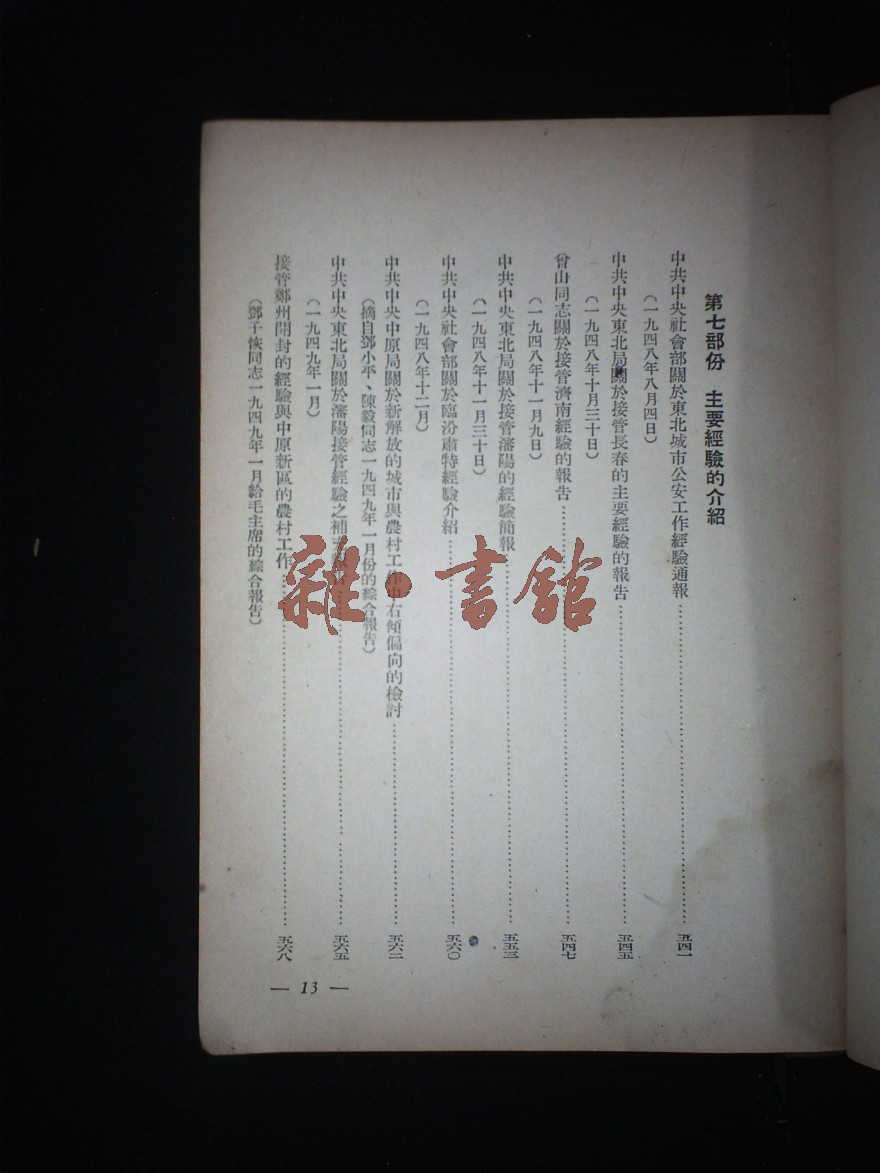 第七部份　主要經驗的介紹
中共中央社會部關於東北城市公安工作經驗通報……五四一
(一九四八年八月四日)
中共中央東北局關於接管長春的主要經驗的報告……五四五
(一九四八年十月三十日)
曾山同志關於接管濟南經驗的報告……五四七
(一九四八年十一月九日)
中共中央東北局關於接管瀋陽的經驗簡報……五五三
(一九四八年十一月三十日)
中共中央社會部關於臨汾肅特經驗介紹……五六〇
(一九四八年十二月)
中共中央中原局關於新解放的城市與農村工作中右傾偏向的檢討……五六二
(摘自鄧小平、陳毅同志一九四九年一月份的綜合報告)
中共中央東北局關於瀋陽接管經驗之補充報告……五六五
(一九四九年一月)
接管鄭州開封的經驗與中原新區的農村工作……五六八
(鄧子恢同志一九四九年一月給毛主席的綜合報告)
— 13 —
雜·書館